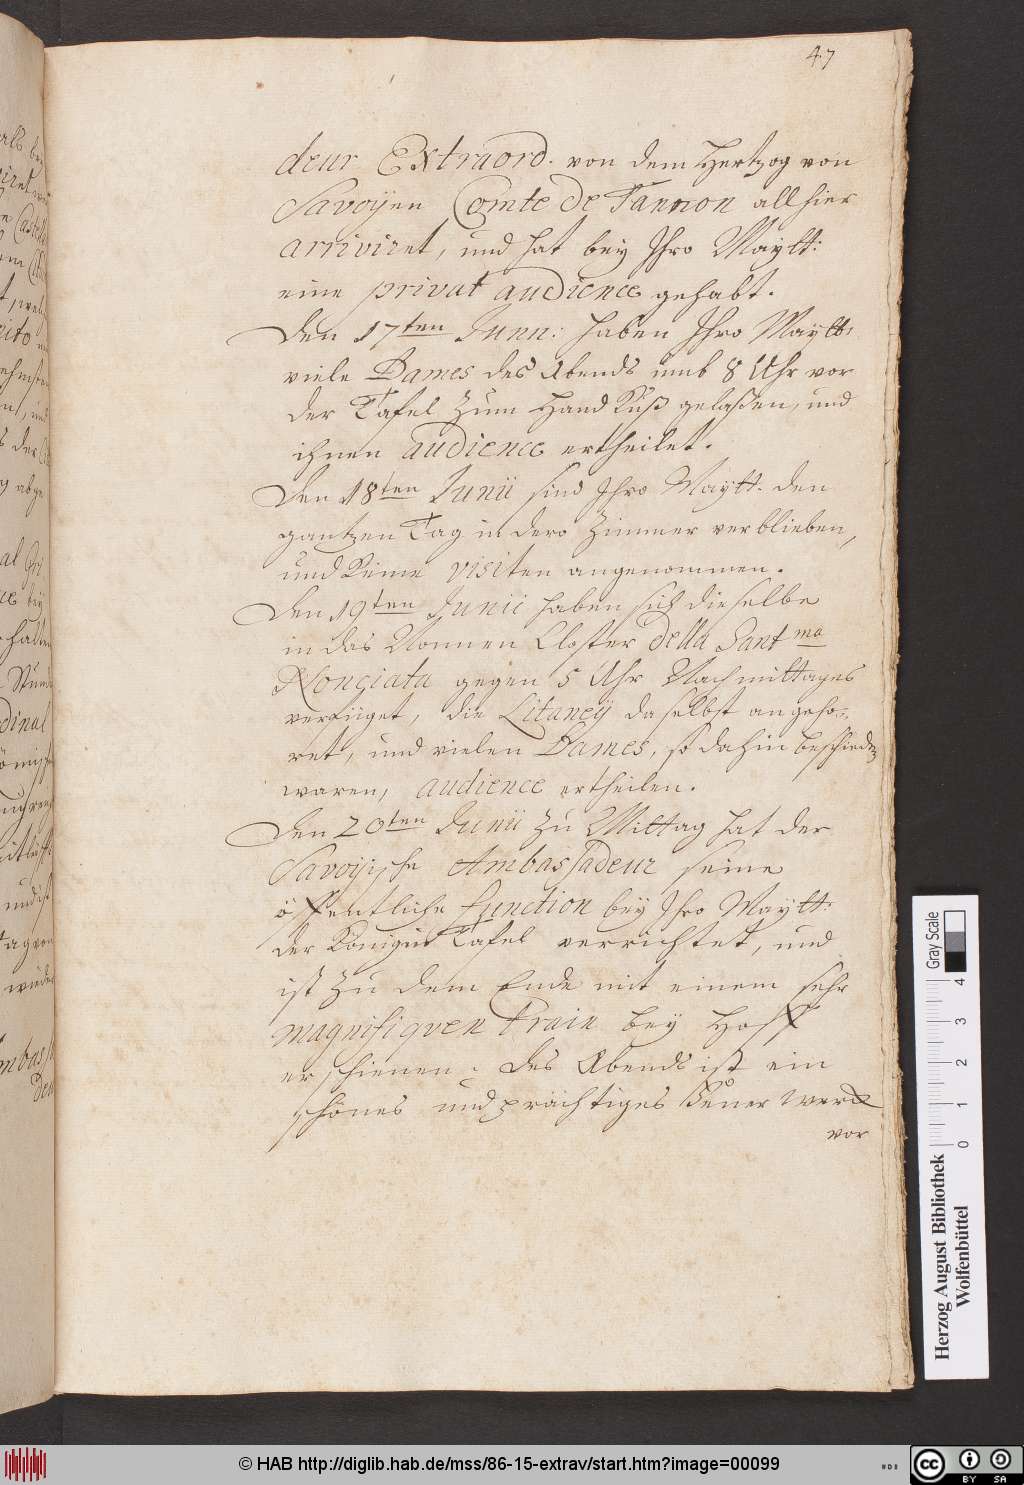 47
deur Extraord. von dem Hertzog von
Savoÿen Comte de Tannon allhier
arriviret, und hat bey Ihro Maytt:
eine privat audience gehabt.
Den 17ten Junii: haben Ihro Maÿtt:
viele Dames des Abends umb 8 Uhr vor
der Taffel zum Hand Kuß gelaßen, und
ihnen audience ertheilet.
Den 18ten Junii sind Ihro Maytt. den
gantzen Tag in dero Zimmer verblieben,
und keine visiten angenommen.
Den 19ten Junii haben sich dieselbe
in das Nonnen Closter della Santma
Nonciata gegen 5 Uhr Nachmittages
verfüget, die Litaneÿ daselbst angehö-
ret, und vielen Dames, so dahin beschieden
waren, audience ertheilen.
Den 20ten Junii zu Mittag hat der
Savoÿische Ambassadeur seine
öffentliche function bey Ihro Maÿtt:
der Königin Taffel verrichtet, und
ist zu dem Ende mit einem sehr
magnifiqven Train bey Hoff
erschienen. Des Abends ist ein
schönes und prächtiges Feuer Werck
vor
als
Castell
dinal
und ist
tag von
wieder
mbass
den
Gray Scale
0 1 2 3 4
Herzog August Bibliothek
Wolfenbüttel
© HAB http://diglib.hab.de/mss/86-15-extrav/start.htm?image=00099
CC BY SA